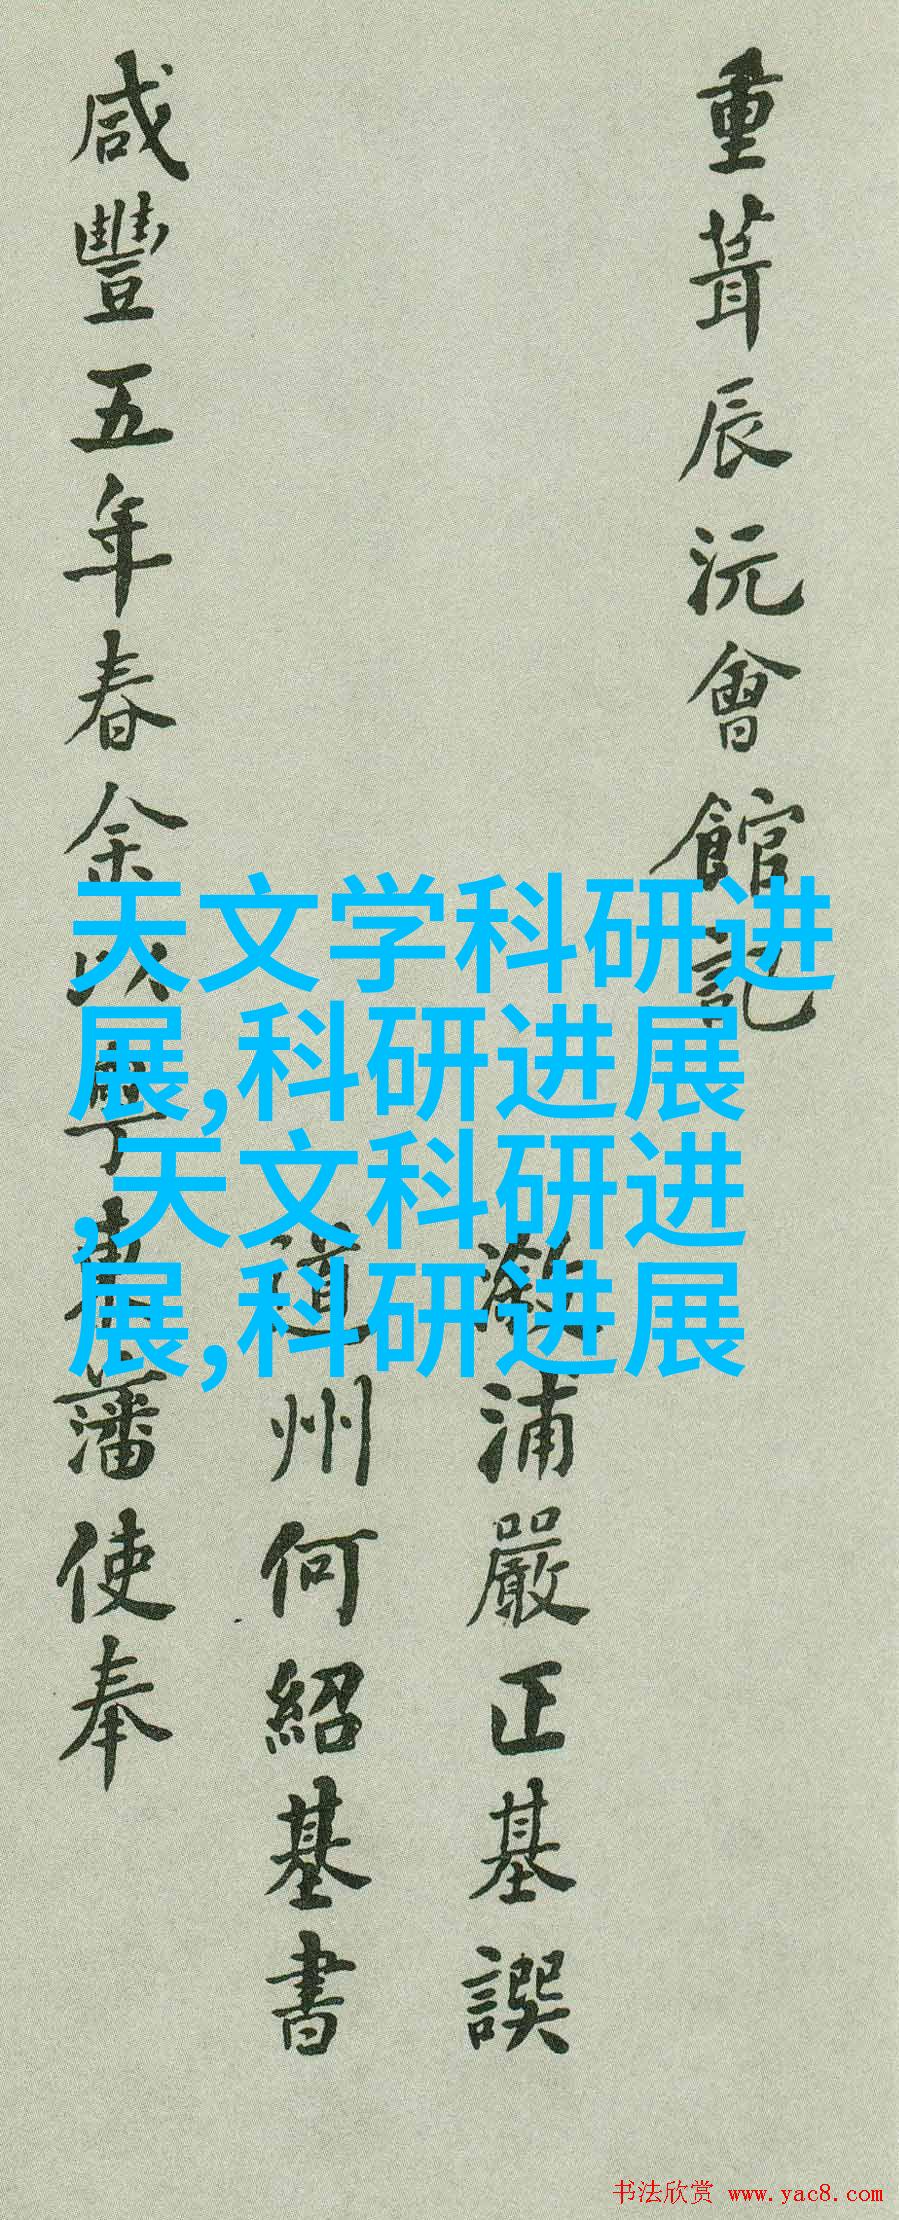 重葺辰沅會館記
漵浦嚴正基譔
道州何紹基書
咸豐五年春余以粤東藩使奉
天文学科研进
展,科研进展
,天文科研进
展,科研进展
书法欣赏 www.yac8.com